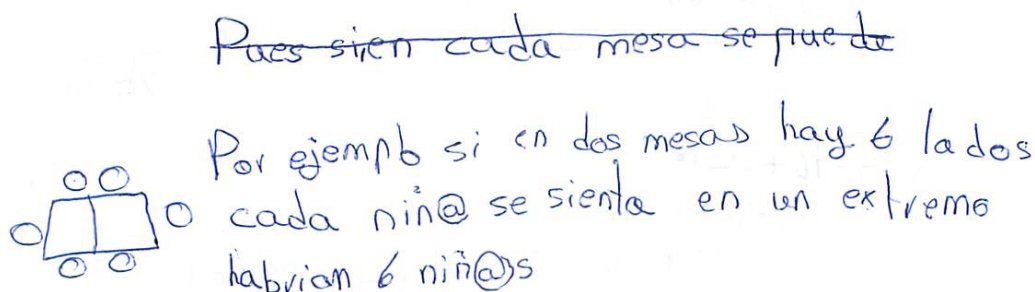 Pues si en cada mesa se puede
Por ejemplo si en dos mesas hay 6 lados
cada niñ@ se sienta en un extremo
habrian 6 niñ@s